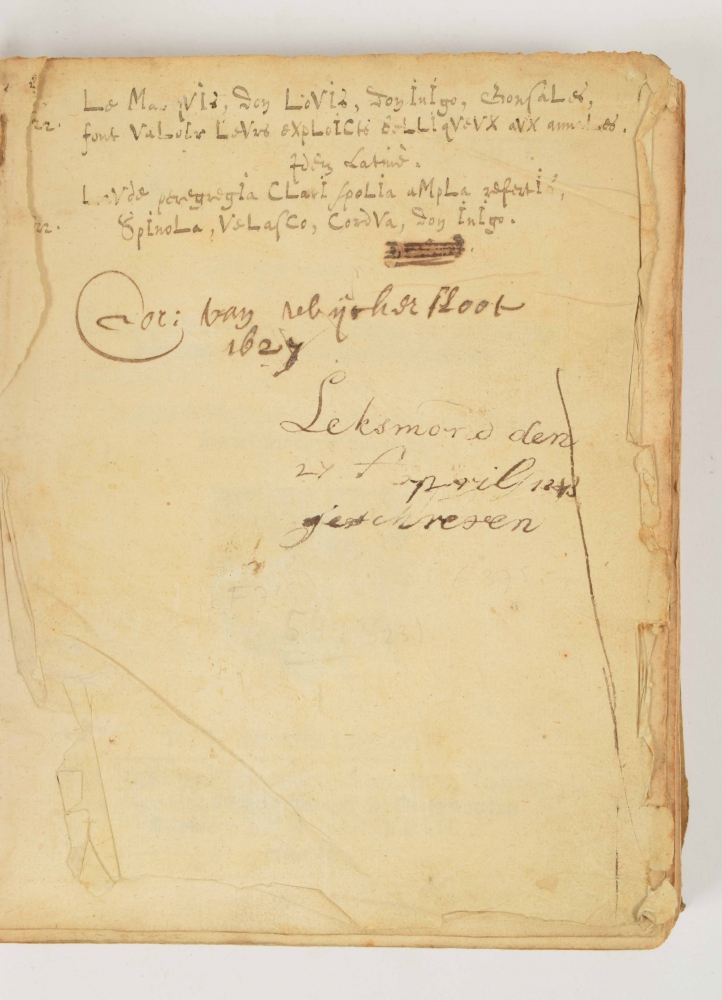 Le Marquis, Don LoVIs, Don InIgo, GonsaLes,
22. font VaLoIr LeVrs expLoICts beLLIqVeVX aVX annaLes.
Idem Latinè.
LaVde peregregIa CLarI spoLIa aMpLa refertIs,
22. SpInoLa, VeLasCo, CordVa, Don InIgo.
Cor: van
1627
Leksmond den
27 April
geschreven